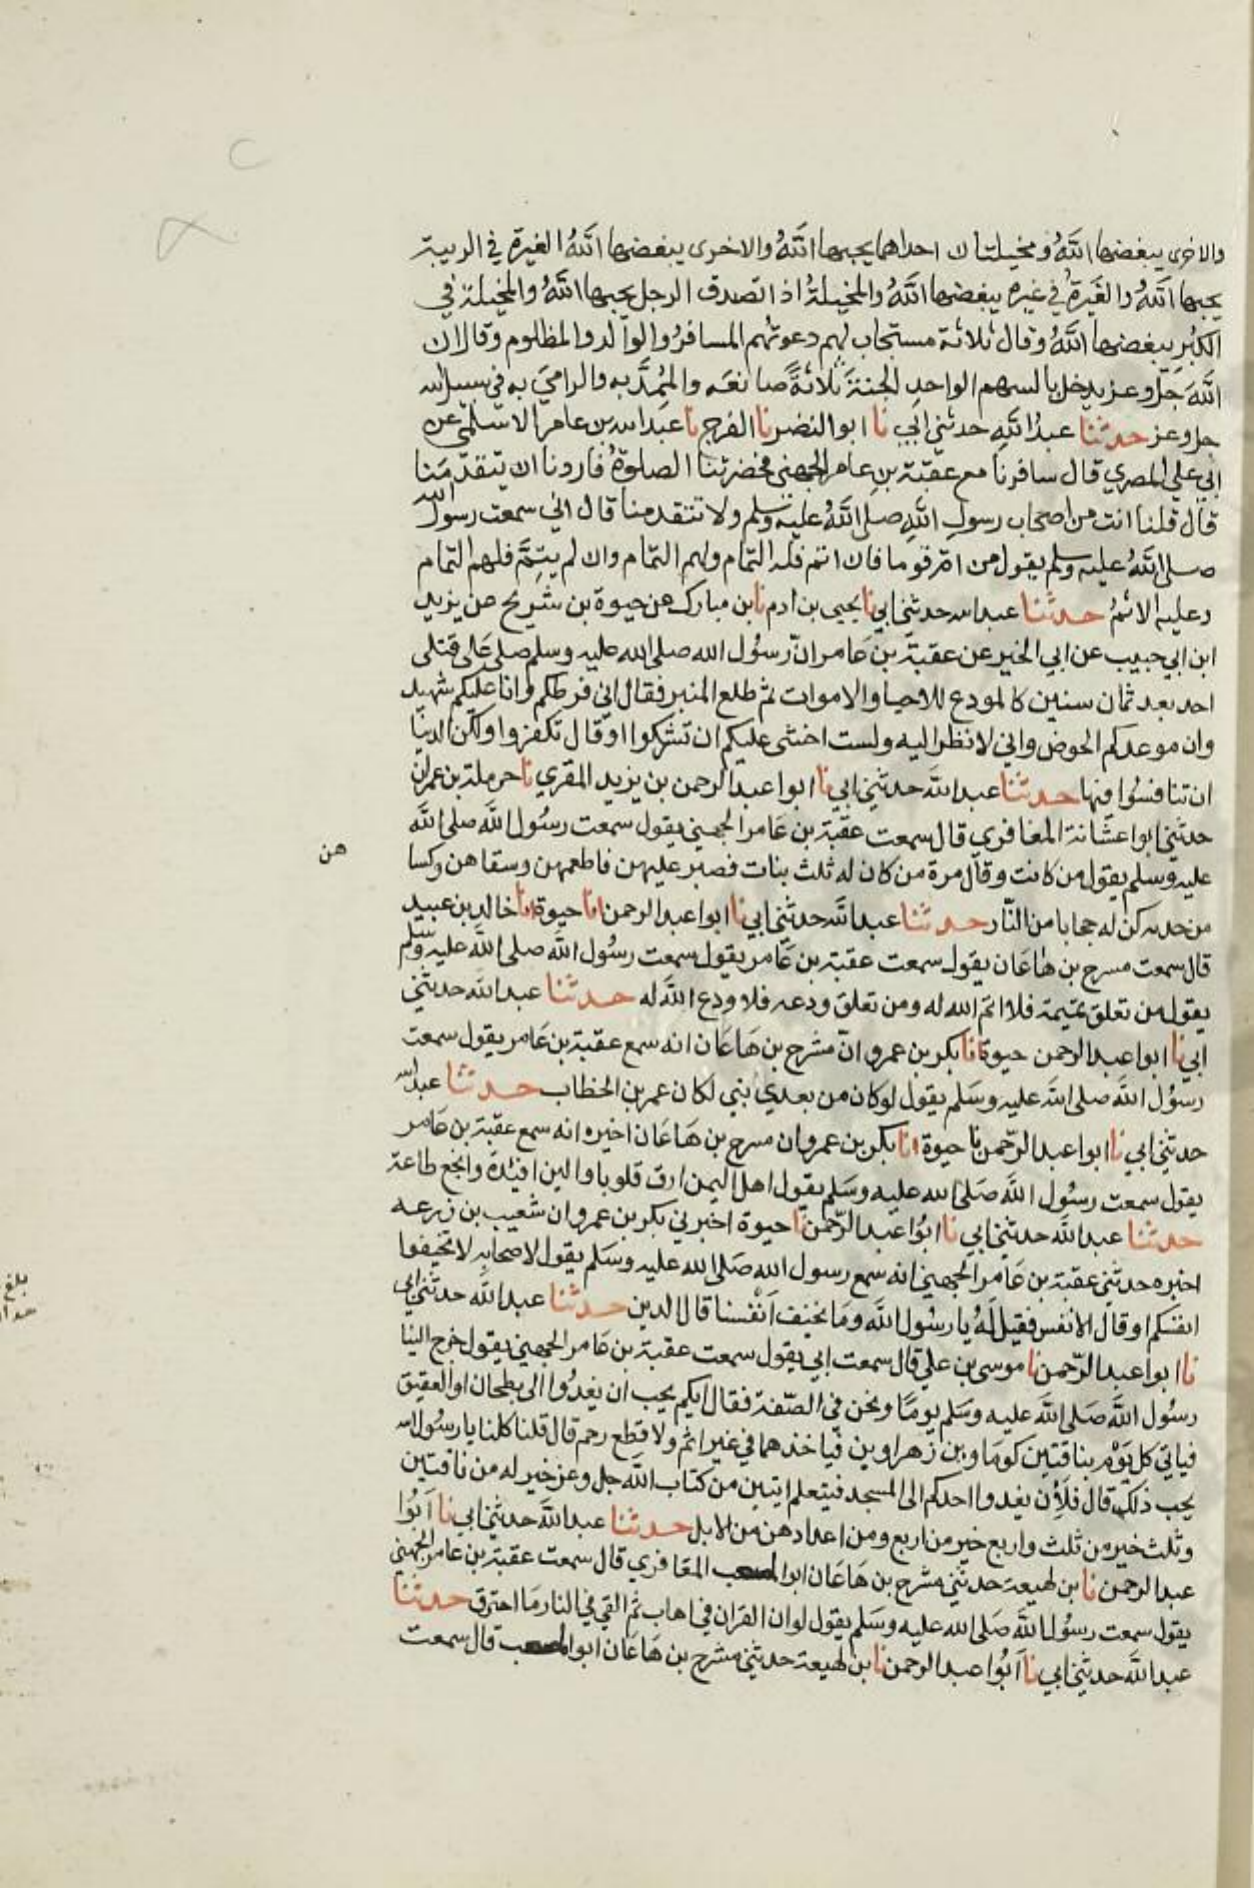 والاخرى يبغضها اللهُ ومخيلتان احداهما يحبها اللهُ والاخرى يبغضها اللهُ الغيرة في الريبة
يحبها اللهُ والغَيرةُ في غيره يبغضها اللهُ والمخيلةُ اذا تصدق الرجل يحبها اللهُ والمخيلة في
الكِبْرِ يبغضها اللهُ وقال ثلاثة مستجاب لهم دعوتهم المسافرُ والوالد والمظلوم وقال ان
اللهَ جل وعز يدخل بالسهم الواحدِ الجنةَ ثلاثةً صانعَه والمُمِدَّ به والراميَ به في سبيل الله
جل وعز حدثنا عبدُ اللهِ حدثني ابي نا ابو النضر نا الفرج نا عبد الله بن عامر الاسلمي عن
ابي علي المصري قال سافرنا مع عقبة بن عامر الجهني فحضرتنا الصلوةُ فاردنا ان يتقدمَنا
قال قلنا انت من اصحاب رسولِ اللهِ صلى اللهُ عليه وسلم ولا تتقدمنا قال اني سمعت رسول الله
صلى اللهُ عليه وسلم يقول من امّ قوما فان اتم فله التمام ولهم التمام وان لم يتِمَّ فلهم التمام
وعليه الاثمُ حدثنا عبد الله حدثني ابي نا يحيى بن ادم نا بن مبارك عن حيوة بن شريح عن يزيد
ابن ابي حبيب عن ابي الخير عن عقبة بن عَامر انّ رسُول الله صلى الله عليه وسلم صلى عَلى قتلى
احد بعد ثمان سنين كالمودع للاحيا والاموات ثم طلع المنبر فقال اني فرطكم وانا عليكم شهيد
وان موعدكم الحوض واني لانظر اليه ولست اخشى عليكم ان تشركوا او قال تكفروا ولكن الدنيا
ان تنافسُوا فيها حدثنا عبد الله حدثني ابي نا ابوا عبد الرحمن بن يزيد المقري نا حرملة بن عمران
حدثني ابوا عشّانة المعافري قال سمعت عقبة بن عَامر الجهني يقول سمعت رسُول الله صلى الله
عليه وسلم يقول من كانت وقال مرة من كان له ثلث بنات فصبر عليهن فاطعمهن وسقاهن وكسا هن
من جدته كن له حجابا من النّار حدثنا عبد الله حدثني ابي نا ابوا عبد الرحمن انا حيوة انا خالد بن عبيد
قال سمعت مسرح بن هاعَان يقول سمعت عقبة بن عَامر يقول سمعت رسُول الله صلى الله عليه وسلم
يقول من تعلق تميمة فلا اتم الله له ومن تعلق ودعه فلا ودع الله له حدثنا عبد الله حدثني
ابي نا ابوا عبد الرحمن حيوة انا بكر بن عمرو انّ مشرح بن هَاعَان انه سمع عقبة بن عَامر يقول سمعت
رسُول الله صلى الله عليه وسَلم يقول لو كان من بعدي نبي لكان عمر بن الخطاب حدثنا عبد الله
حدثني ابي نا ابوا عبد الرّحمن نا حيوة انا بكر بن عمرو ان مسرح بن هَاعَان اخبره انه سمع عقبة بن عَامر
يقول سمعت رسُول الله صَلى الله عليه وسَلم يقول اهل اليمن ارق قلوبا والين افيدة وانجع طاعة
حدثنا عبد الله حدثني ابي نا ابُوا عبد الرّحمن نا حيوة اخبرني بكر بن عمرو ان شعيب بن زرعه
اخبره حدثني عقبة بن عَامر الجهني انه سمع رسول الله صَلى الله عليه وسَلم يقول لاصحابِه لا تخيفوا
انفسكم او قال الانفس فقيل لهُ يا رسُول الله ومَا نخيف اَنْفسنا قال الدين حدثنا عبد الله حدثني ابي
نا ابوا عبد الرّحمن نا موسى بن علي قال سمعت ابي يقول سمعت عقبة بن عَامر الجهني يقول خرج الينا
رسُول الله صَلى الله عليه وسَلم يومًا ونحن في الصّفة فقال ايكم يحب ان يغدُوا الى بطحان او العقيق
فياتي كل يَوْم بناقتين كومَاوين زهراوين فياخذهما في غير اثم ولا قطع رحم قال قلنا كلنا يا رسُول الله
يحب ذلك قال فلَأن يغدوا احدكم الى المسجد فيتعلم ايتين من كتاب الله جل وعز خير له من ناقتين
وثلث خير من ثلث واربع خير من اربع ومن اعدادهن من الابل حدثنا عبد الله حدثني ابي نا ابُوا
عبد الرحمن نا بن لهيعة حدثني مشرح بن هَاعَان ابوا المصعب المعافري قال سمعت عقبة بن عامر الجهني
يقول سمعت رسُول الله صَلى الله عليه وسَلم يقول لو ان القران في اهاب ثم القي في النار مَا احترق حدثنا
عبد الله حدثني ابي نا ابُوا عبد الرحمن نا بن لهيعة حدثني مشرح بن هَاعَان ابوا المصعب قال سمعت
بلغ